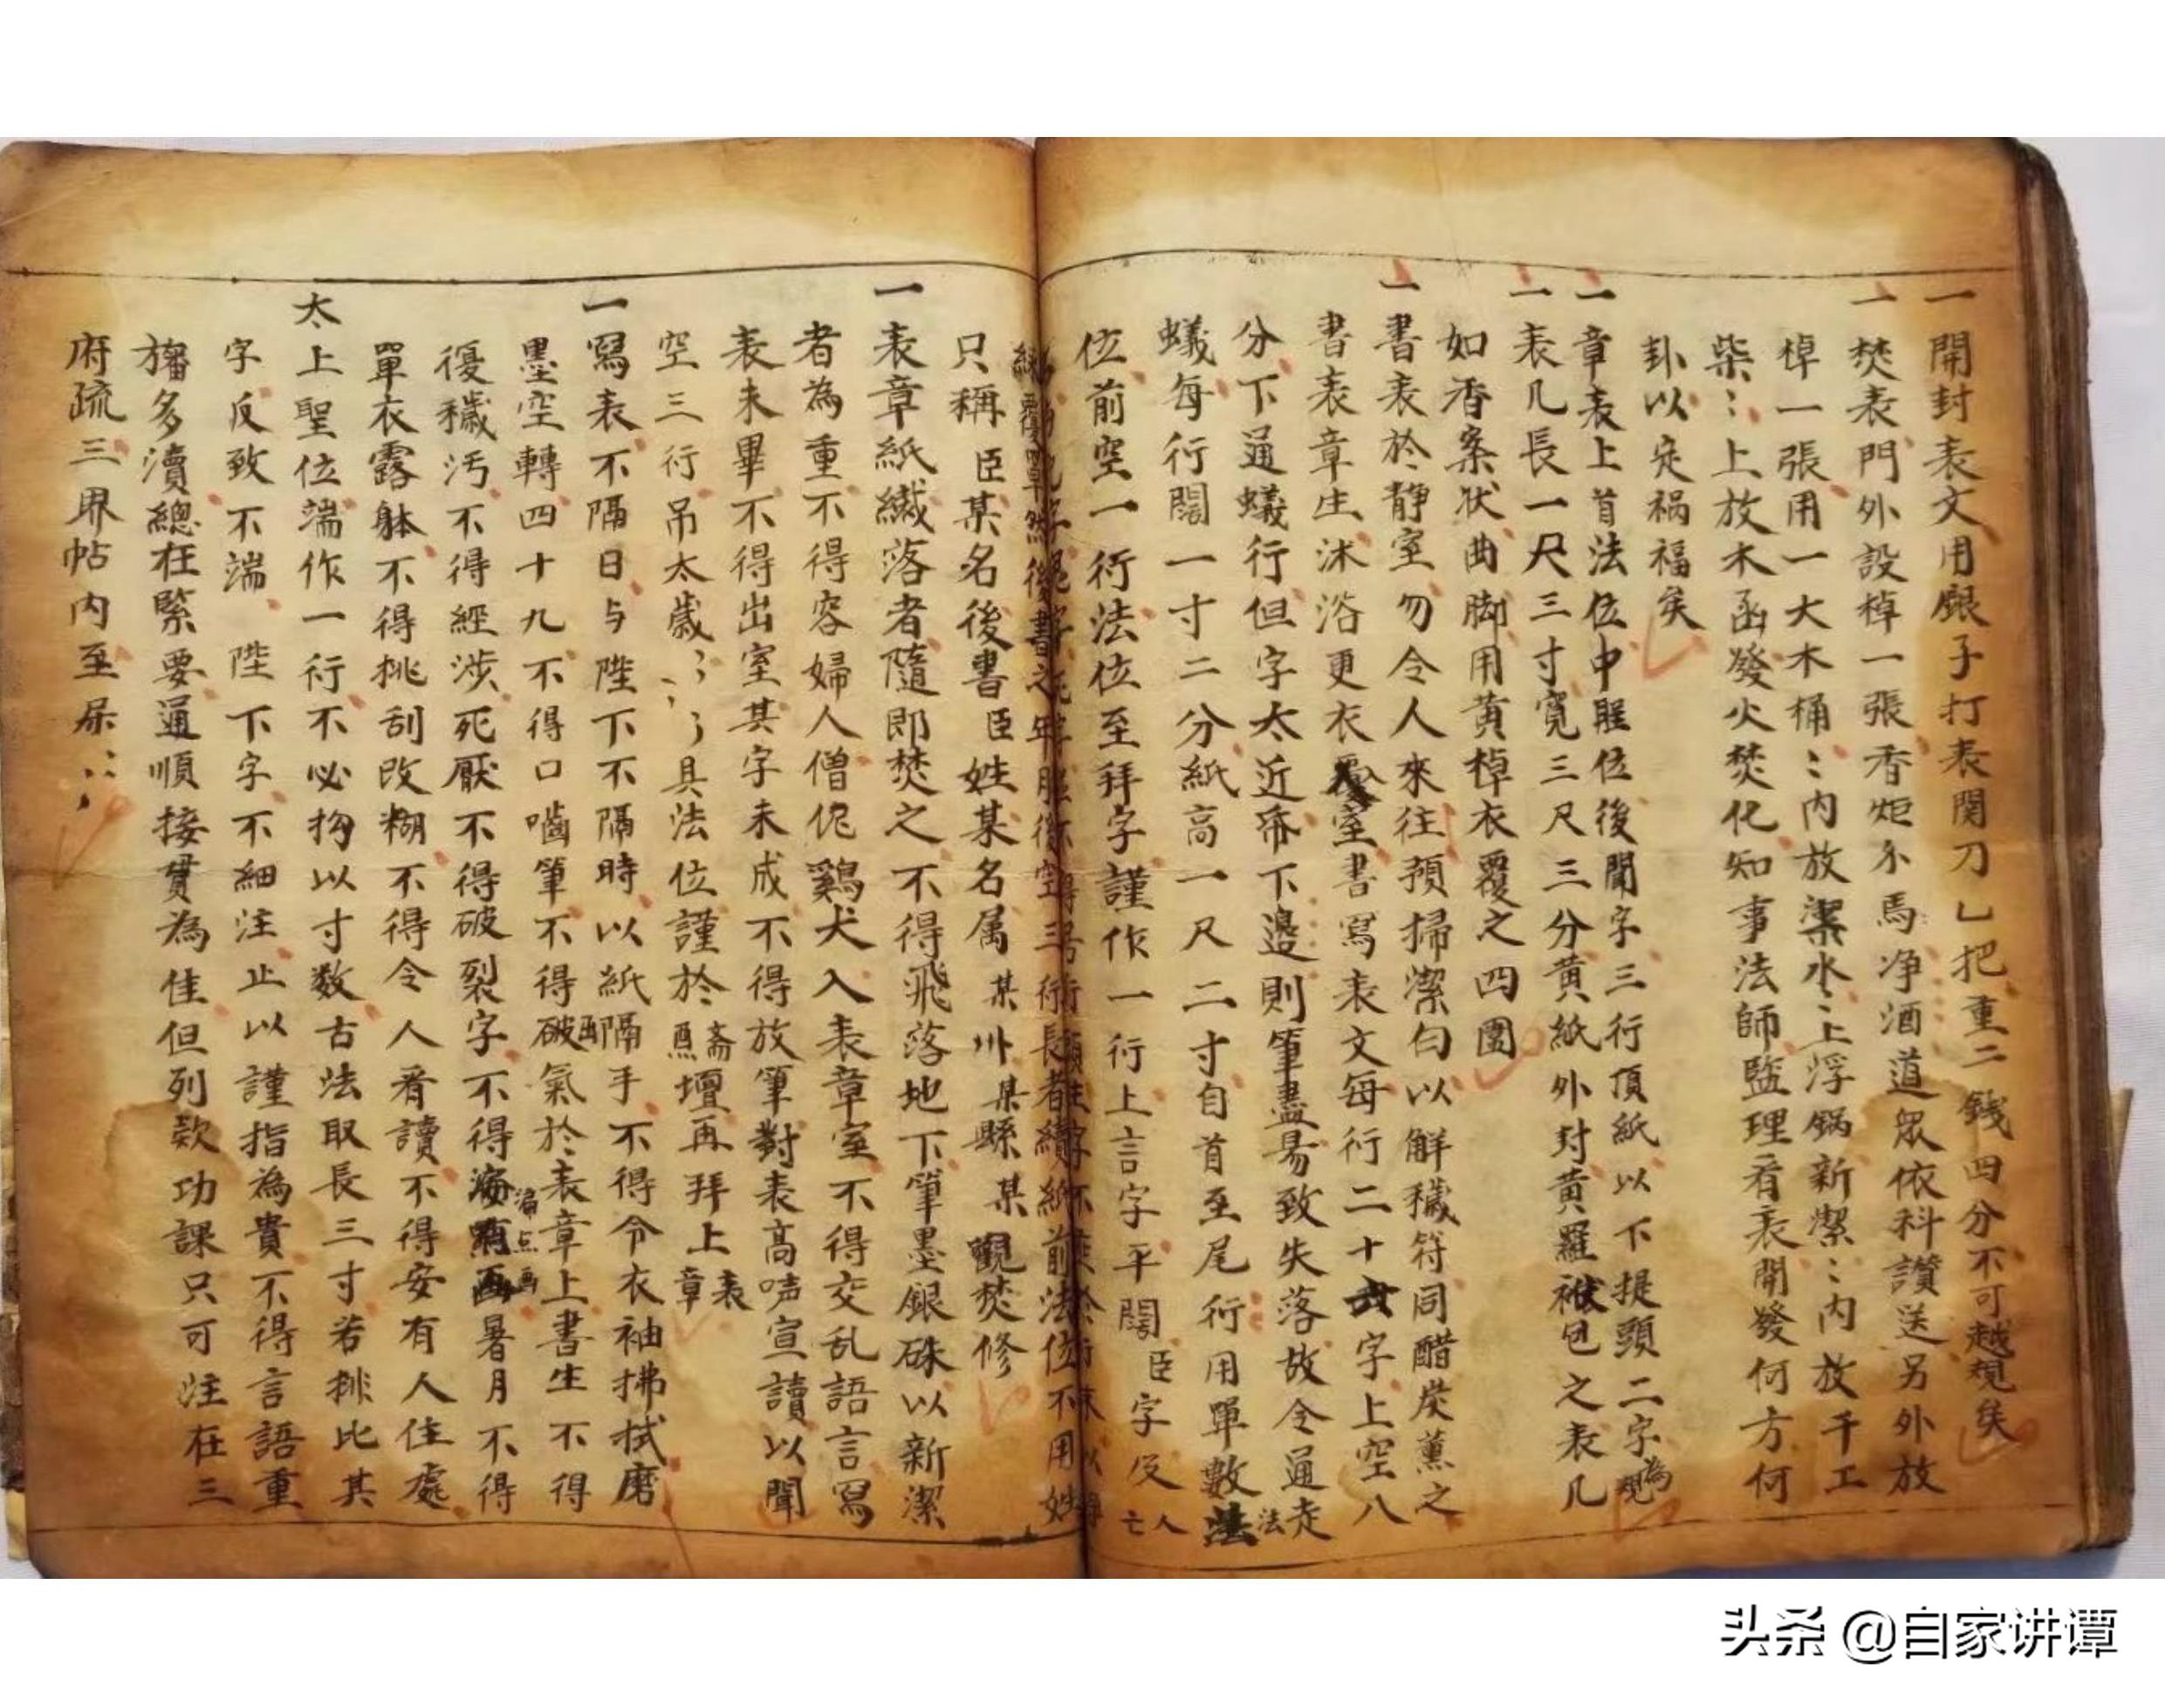 一開封表文用銀子打表関刀乚把重二錢四分不可越規矣
一焚表門外設棹一張香炬尒馬净酒道眾依科讚送另外放
棹一張用一大木桶〻内放潔水〻上浮鍋新潔〻内放千工
柴〻上放木函發火焚化知事法師監理看表開發何方何
卦以定禍福矣
一章表上首法位中聖位後聞字三行頂紙以下提頭二字為規
一表几長一尺三寸寬三尺三分黄紙外封黄羅袱包之表几
如香案狀曲脚用黄棹衣覆之四圍
一書表於静室勿令人來往預掃潔白以解穢符同醋炭薰之
書表章生沐浴更衣入室書寫表文每行二十字上空八
分下通蟻行但字太近帋下邊則筆盡易致失落故令通走
蟻每行闊一寸二分紙高一尺二寸自首至尾行用單數法
位前空一行法位至拜字謹作一行上言字平闊臣字及亡人
只稱臣某名後書臣姓某名属某州某縣某觀焚修
一表章紙纎落者隨即焚之不得飛落地下筆墨銀硃以新潔
者為重不得容婦人僧伲鷄犬入表章室不得交乱語言寫
表未畢不得出室其字未成不得放筆對表高声宣讀以聞
空三行吊太歲〻〻具法位謹於斋醮壇再拜上表章
一寫表不隔日与陛下不隔時以紙隔手不得令衣袖拂拭磨
墨空轉四十九不得口嚙筆不得破氣於表章上書生不得
復穢汚不得經涉死厭不得破裂字不得漏点画暑月不得
單衣露躰不得挑刮改糊不得令人看讀不得安有人住處
太上聖位端作一行不必拘以寸数古法取長三寸若排比其
字反致不端陛下字不細注止以謹指為貴不得言語重
旛多瀆總在緊要通順接貫為佳但列款功課只可注在三
府疏三界帖内至屎〻〻
头条 @自家讲谭